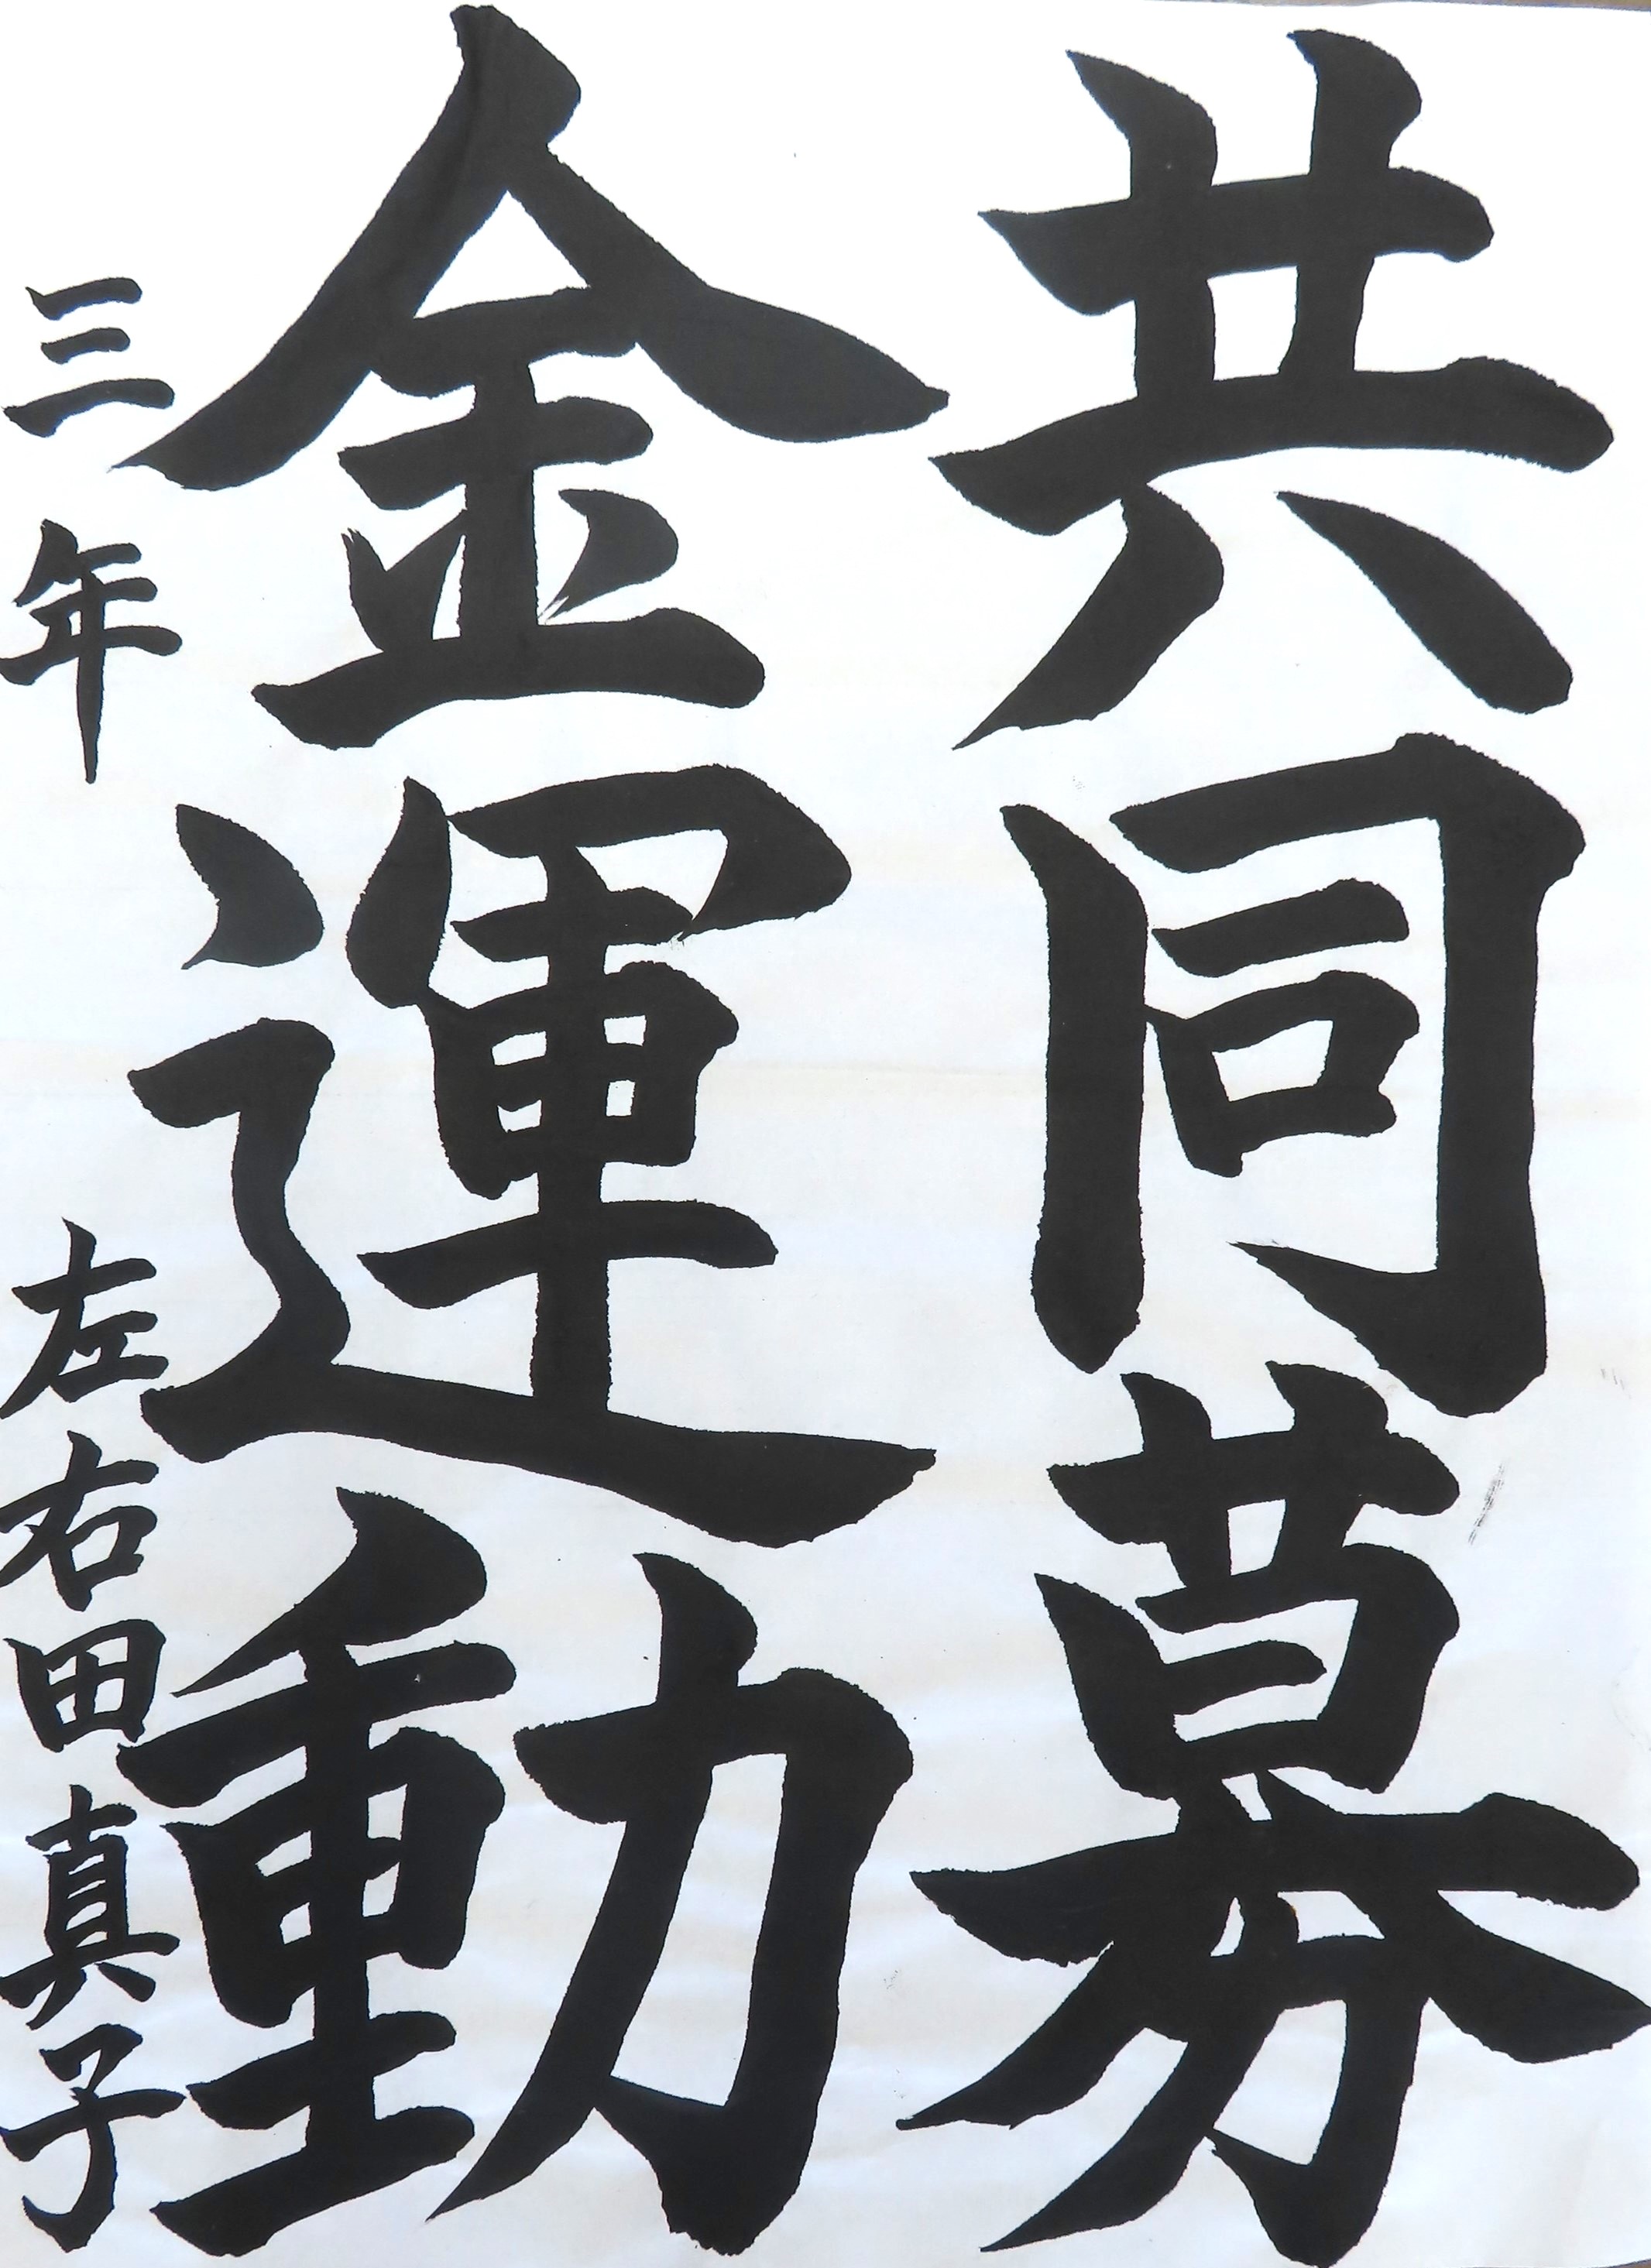 共同募
金運動
三年 左右田真子